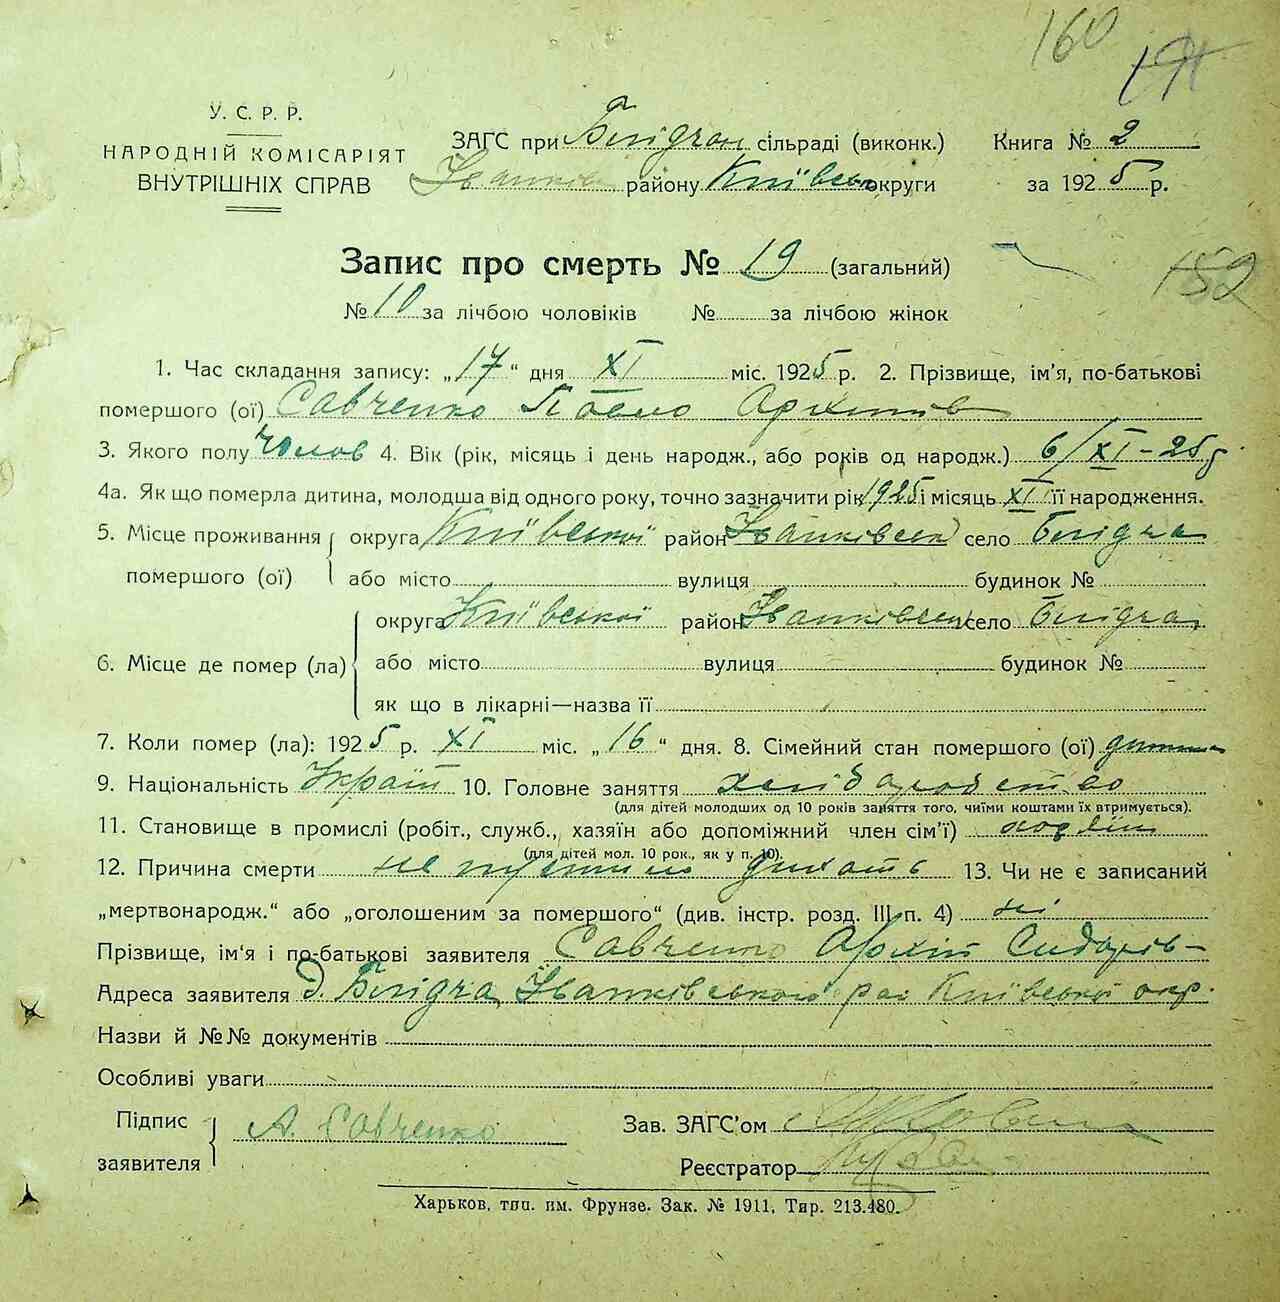 160
У. С. Р. Р.
НАРОДНІЙ КОМІСАРІЯТ
ВНУТРІШНІХ СПРАВ
ЗАГС при сільраді (виконк.) Книга № 2
Іванків району Київськ округи за 1925 р.
152
Запис про смерть № 19 (загальний)
№ 10 за лічбою чоловіків № за лічбою жінок
1. Час складання запису: „17“ дня XI міс. 1925 р. 2. Прізвище, ім'я, по-батькові
помершого (ої) Савченко Павло Архипів
3. Якого полу Чолов 4. Вік (рік, місяць і день народж., або років од народж.) 6/XI-25 р
4а. Як що померла дитина, молодша від одного року, точно зазначити рік 1925 і місяць XI її народження.
5. Місце проживання помершого (ої) округа Київської район Іванківськ село
або місто вулиця будинок №
6. Місце де помер (ла) округа Київської район Іванківськ село
або місто вулиця будинок №
як що в лікарні—назва її
7. Коли помер (ла): 1925 р. XI міс. „16“ дня. 8. Сімейний стан помершого (ої) дитина
9. Національність Україн 10. Головне заняття хліборобство
(для дітей молодших од 10 років заняття того, чиїми коштами їх втримується).
11. Становище в промислі (робіт., служб., хазяїн або допоміжний член сім'ї) хазяїн
(для дітей мол. 10 рок., як у п. 10).
12. Причина смерти не дихать 13. Чи не є записаний
„мертвонародж.“ або „оголошеним за помершого“ (див. інстр. розд. III п. 4) ні
Прізвище, ім'я і по-батькові заявителя Савченко Архип Сидорів
Адреса заявителя Іванківського рай Київської окр.
Назви й №№ документів
Особливі уваги
Підпис заявителя А. Савченко
Зав. ЗАГС'ом
Реєстратор
Харьков, тип. им. Фрунзе. Зак. № 1911, Тир. 213.480.